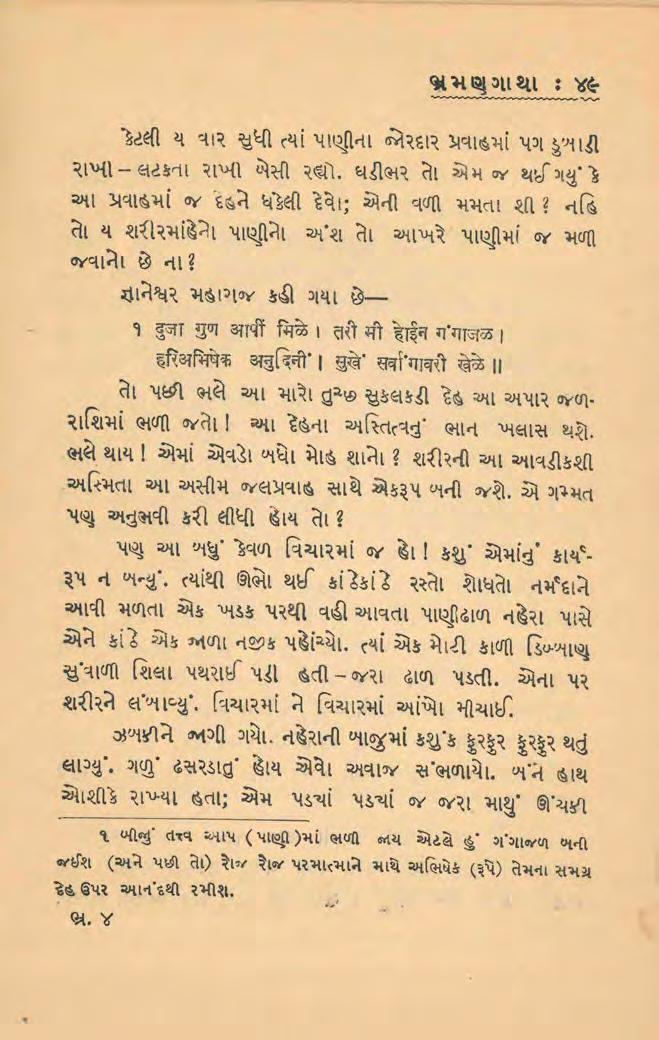 ભ્રમણગાથા : ૪૯
કેટલી ય વાર સુધી ત્યાં પાણીના જોરદાર પ્રવાહમાં પગ ડુબાડી
રાખી – લટકતા રાખી બેસી રહ્યો. ઘડીભર તો એમ જ થઈ ગયું કે
આ પ્રવાહમાં જ દેહને ધકેલી દેવો; એની વળી મમતા શી ? નહિ
તો ય શરીરમાંહેનો પાણીનો અંશ તો આખરે પાણીમાં જ મળી
જવાનો છે ના ?
જ્ઞાનેશ્વર મહારાજ કહી ગયા છે—
૧ दुजा गुण आपीं मिळे । तरी मी होईन गंगाजळ ।
हरिअभिषेक अनुदिनीं । सुखें सर्वांगावरी खेळे ॥
તો પછી ભલે આ મારો તુચ્છ સુકલકડી દેહ આ અપાર જળ-
રાશિમાં ભળી જતો ! આ દેહના અસ્તિત્વનું ભાન ખલાસ થશે.
ભલે થાય ! એમાં એવડો બધો મોહ શાનો ? શરીરની આ આવડીકશી
અસ્મિતા આ અસીમ જલપ્રવાહ સાથે એકરૂપ બની જશે. એ ગમ્મત
પણ અનુભવી કરી લીધી હોય તો ?
પણ આ બધું કેવળ વિચારમાં જ હો ! કશું એમાંનું કાર્ય-
રૂપ ન બન્યું. ત્યાંથી ઊભો થઈ કાંઠેકાંઠે રસ્તો શોધતો નર્મદાને
આવી મળતા એક ખડક પરથી વહી આવતા પાણીઢાળ નહેરા પાસે
એને કાંઠે એક જાળા નજીક પહોંચ્યો. ત્યાં એક મોટી કાળી ડિબ્બાણ
સુંવાળી શિલા પથરાઈ પડી હતી – જરા ઢાળ પડતી. એના પર
શરીરને લંબાવ્યું. વિચારમાં ને વિચારમાં આંખો મીચાઈ.
ઝબકીને જાગી ગયો. નહેરાની બાજુમાં કશુંક ફુરફુર ફુરફુર થતું
લાગ્યું. ગળું ઢસરડાતું હોય એવો અવાજ સંભળાયો. બંને હાથ
ઓશીકે રાખ્યા હતા; એમ પડ્યાં પડ્યાં જ જરા માથું ઊંચકી
૧ બીજું તત્ત્વ આપ ( પાણી )માં ભળી જાય એટલે હું ગંગાજળ બની
જઈશ (અને પછી તો) રોજ રોજ પરમાત્માને માથે અભિષેક (રૂપે) તેમના સમગ્ર
દેહ ઉપર આનંદથી રમીશ.
ભ્ર. ૪